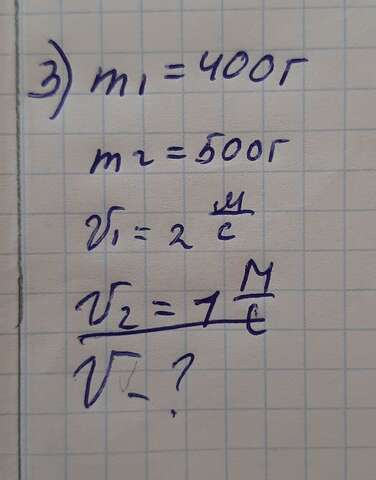 3) m₁ = 400г
m₂ = 500г
V₁ = 2 м/с
V₂ = 1 м/с
V - ?